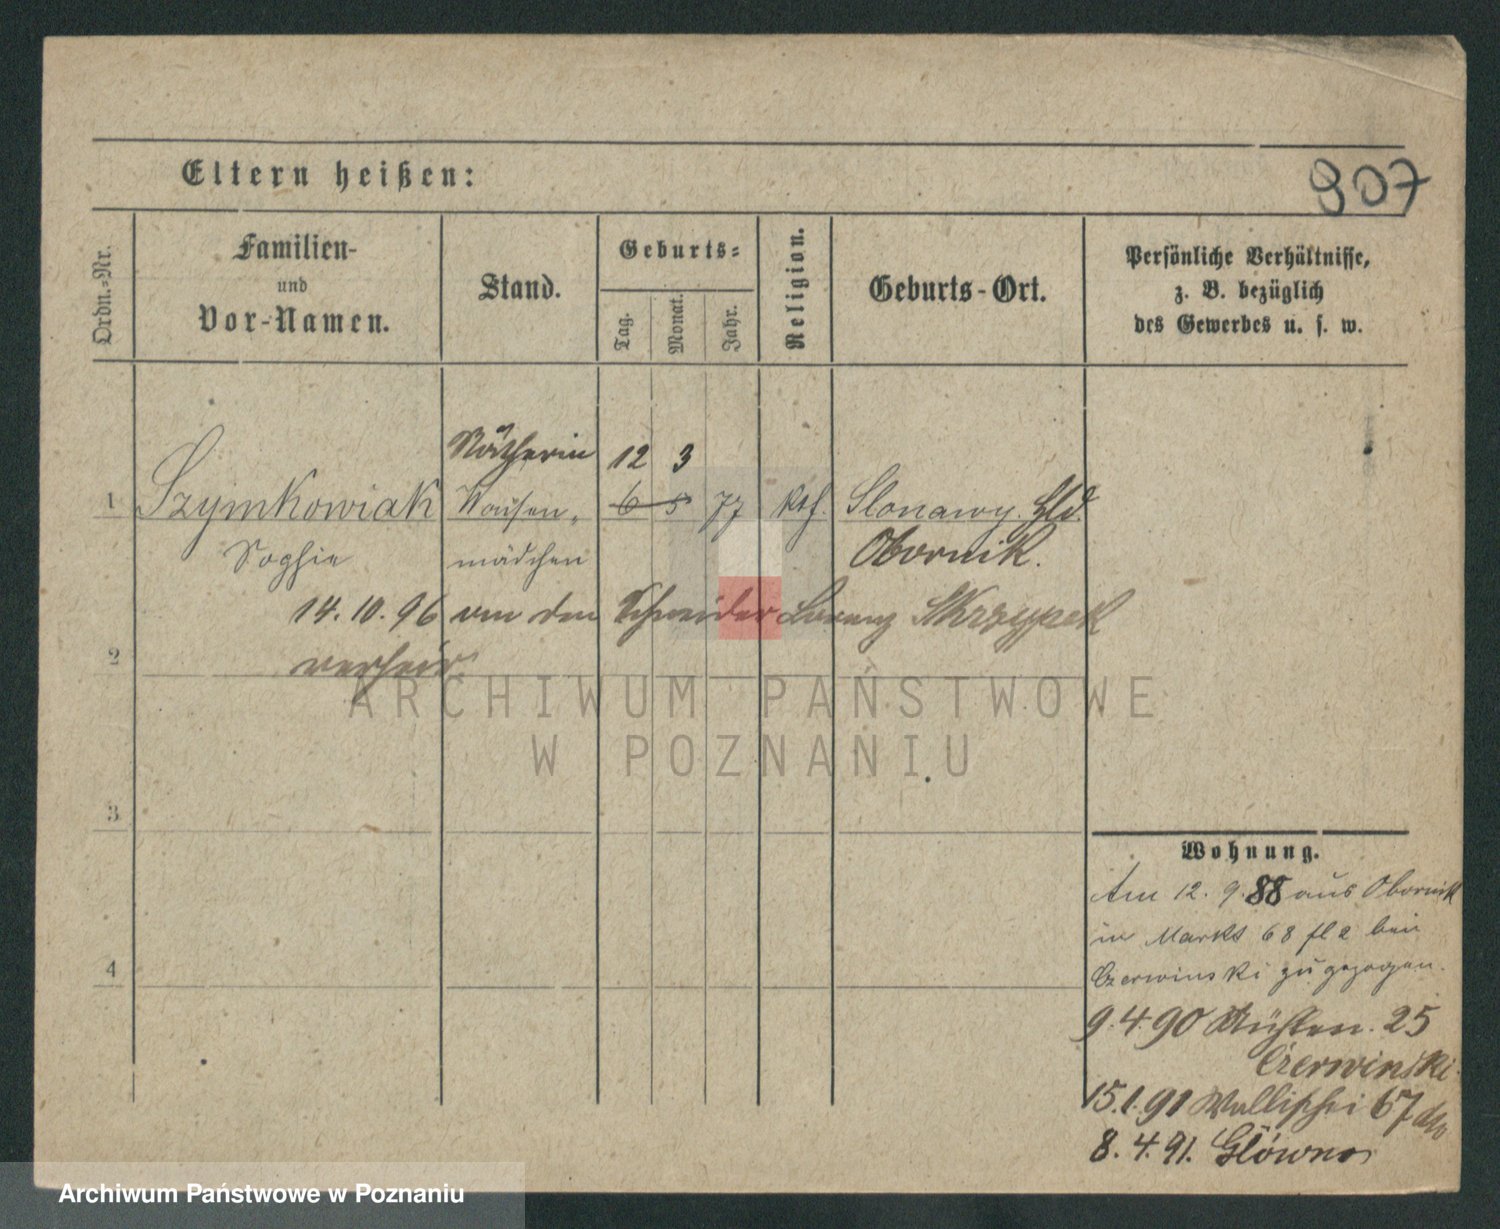 Eltern heißen:
907
Ordn.-Nr.
Familien-
und
Vor-Namen.
Stand.
Geburts-
Tag.
Monat.
Jahr.
Religion.
Geburts-Ort.
Persönliche Verhältnisse,
z. B. bezüglich
des Gewerbes u. s. w.
Nätherin 12 3
1 Szymkowiak Waisen- 6 5 77 kth. Slonawy. Hld.
Sophie mädchen Obornik.
14.10.96 von den Schneider Lorenz Skrzypek
2 verheir.
ARCHIWUM PAŃSTWOWE
W POZNANIU
3
Wohnung.
Am 12. 9. 88 aus Obornik
in Markt 68 fl 2 bei
4
Czerwinski zugezogen.
9.4.90 25
Czerwinski.
15.1.91 Wallischei 67 do
8.4.91. Główno
Archiwum Państwowe w Poznaniu